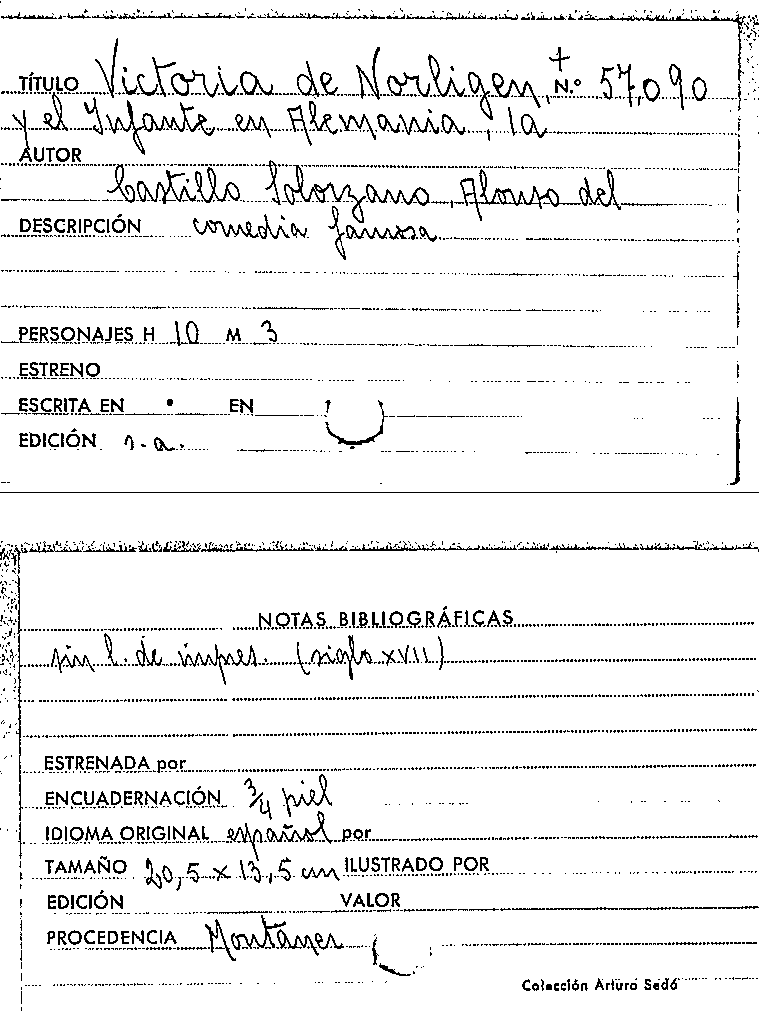 TÍTULO Victoria de Norligen, N.º 57,090
y el Infante en Alemania, la
AUTOR
Castillo Solorzano, Alonso del
DESCRIPCIÓN comedia famosa
PERSONAJES H 10 M 3
ESTRENO
ESCRITA EN EN
EDICIÓN s.a.
NOTAS BIBLIOGRÁFICAS
sin l. de impres. (siglo XVII)
ESTRENADA por
ENCUADERNACIÓN 3/4 piel
IDIOMA ORIGINAL español por
TAMAÑO 20,5 x 13,5 cm ILUSTRADO POR
EDICIÓN VALOR
PROCEDENCIA Montaner
Colección Arturo Sedó